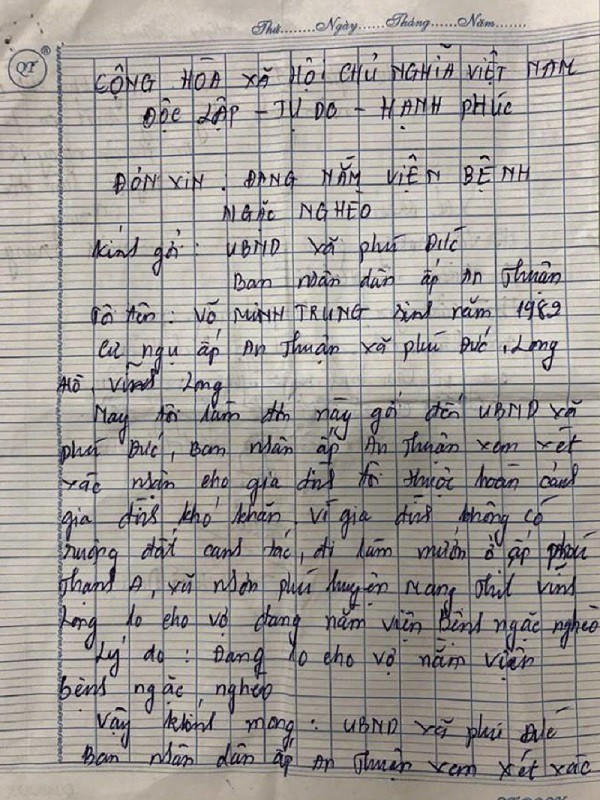 Thứ........Ngày........Tháng........Năm........
QT ®
CỘNG HÒA XÃ HỘI CHỦ NGHĨA VIỆT NAM
ĐỘC LẬP - TỰ DO - HẠNH PHÚC
ĐƠN XIN : ĐANG NẰM VIỆN BỆNH
NGẶC NGHÈO
Kính gởi : UBND xã phú Đức
Ban nhân dân ấp An Thuận
Tôi tên : Võ MINH TRUNG sinh năm 1982
Cư ngụ ấp An Thuận xã phú Đức, Long
Hồ, Vĩnh Long
Nay tôi làm đơn này gởi đến UBND xã
phú Đức, Ban nhân ấp An Thuận xem xét
xác nhận cho gia đình tôi thuộc hoàn cảnh
gia đình khó khăn, vì gia đình không có
ruộng đất canh tác, đi làm mướn ở ấp phú
Thạnh A, xã nhơn phú huyện Mang Thít Vĩnh
Long lo cho vợ đang nằm viện Bệnh ngặc nghèo
Lý do : Đang lo cho vợ nằm viện
bệnh ngặc, nghèo
Vậy kính mong : UBND xã phú Đức
Ban nhân dân ấp An Thuận xem xét xác